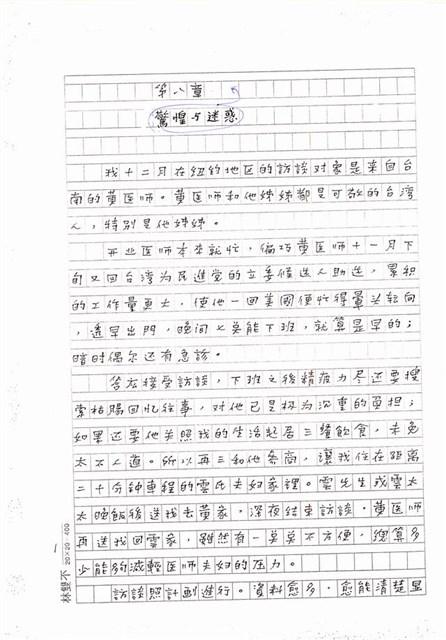 第八章
驚惶与迷惑
我十二月在紐約地区的訪談对象是来自台
南的黄医师。黄医师和他姊姊都是可敬的台湾
人，特別是他姊姊。
开业医师本来就忙，偏巧黄医师十一月下
旬又回台湾为民進党的立委候选人助选，累积
的工作量更大，使他一回美國便忙得暈头轉向
，透早出門，晚间八 能下班，就算是早的；
暗时偶尔还有急診。
答应接受訪談，下班之後精疲力尽还要搜
索枯腸回忆往事，对他已是极为沉重的負担；
如果还要他关照我的生活起居三餐飲食，未免
太不人道。所以再三和他参商，讓我住在距離
二十分钟車程的雲 夫妇家裡。雲先生或雲太
太晚飯後送我去黄家，深夜结束訪談，黄医师
再送我回雲家，雖然有一 不方便，總算多
少能够减輕医师夫妇的压力。
訪談照計劃進行。資料愈多，愈能清楚显
1
林雙不 20×20=400